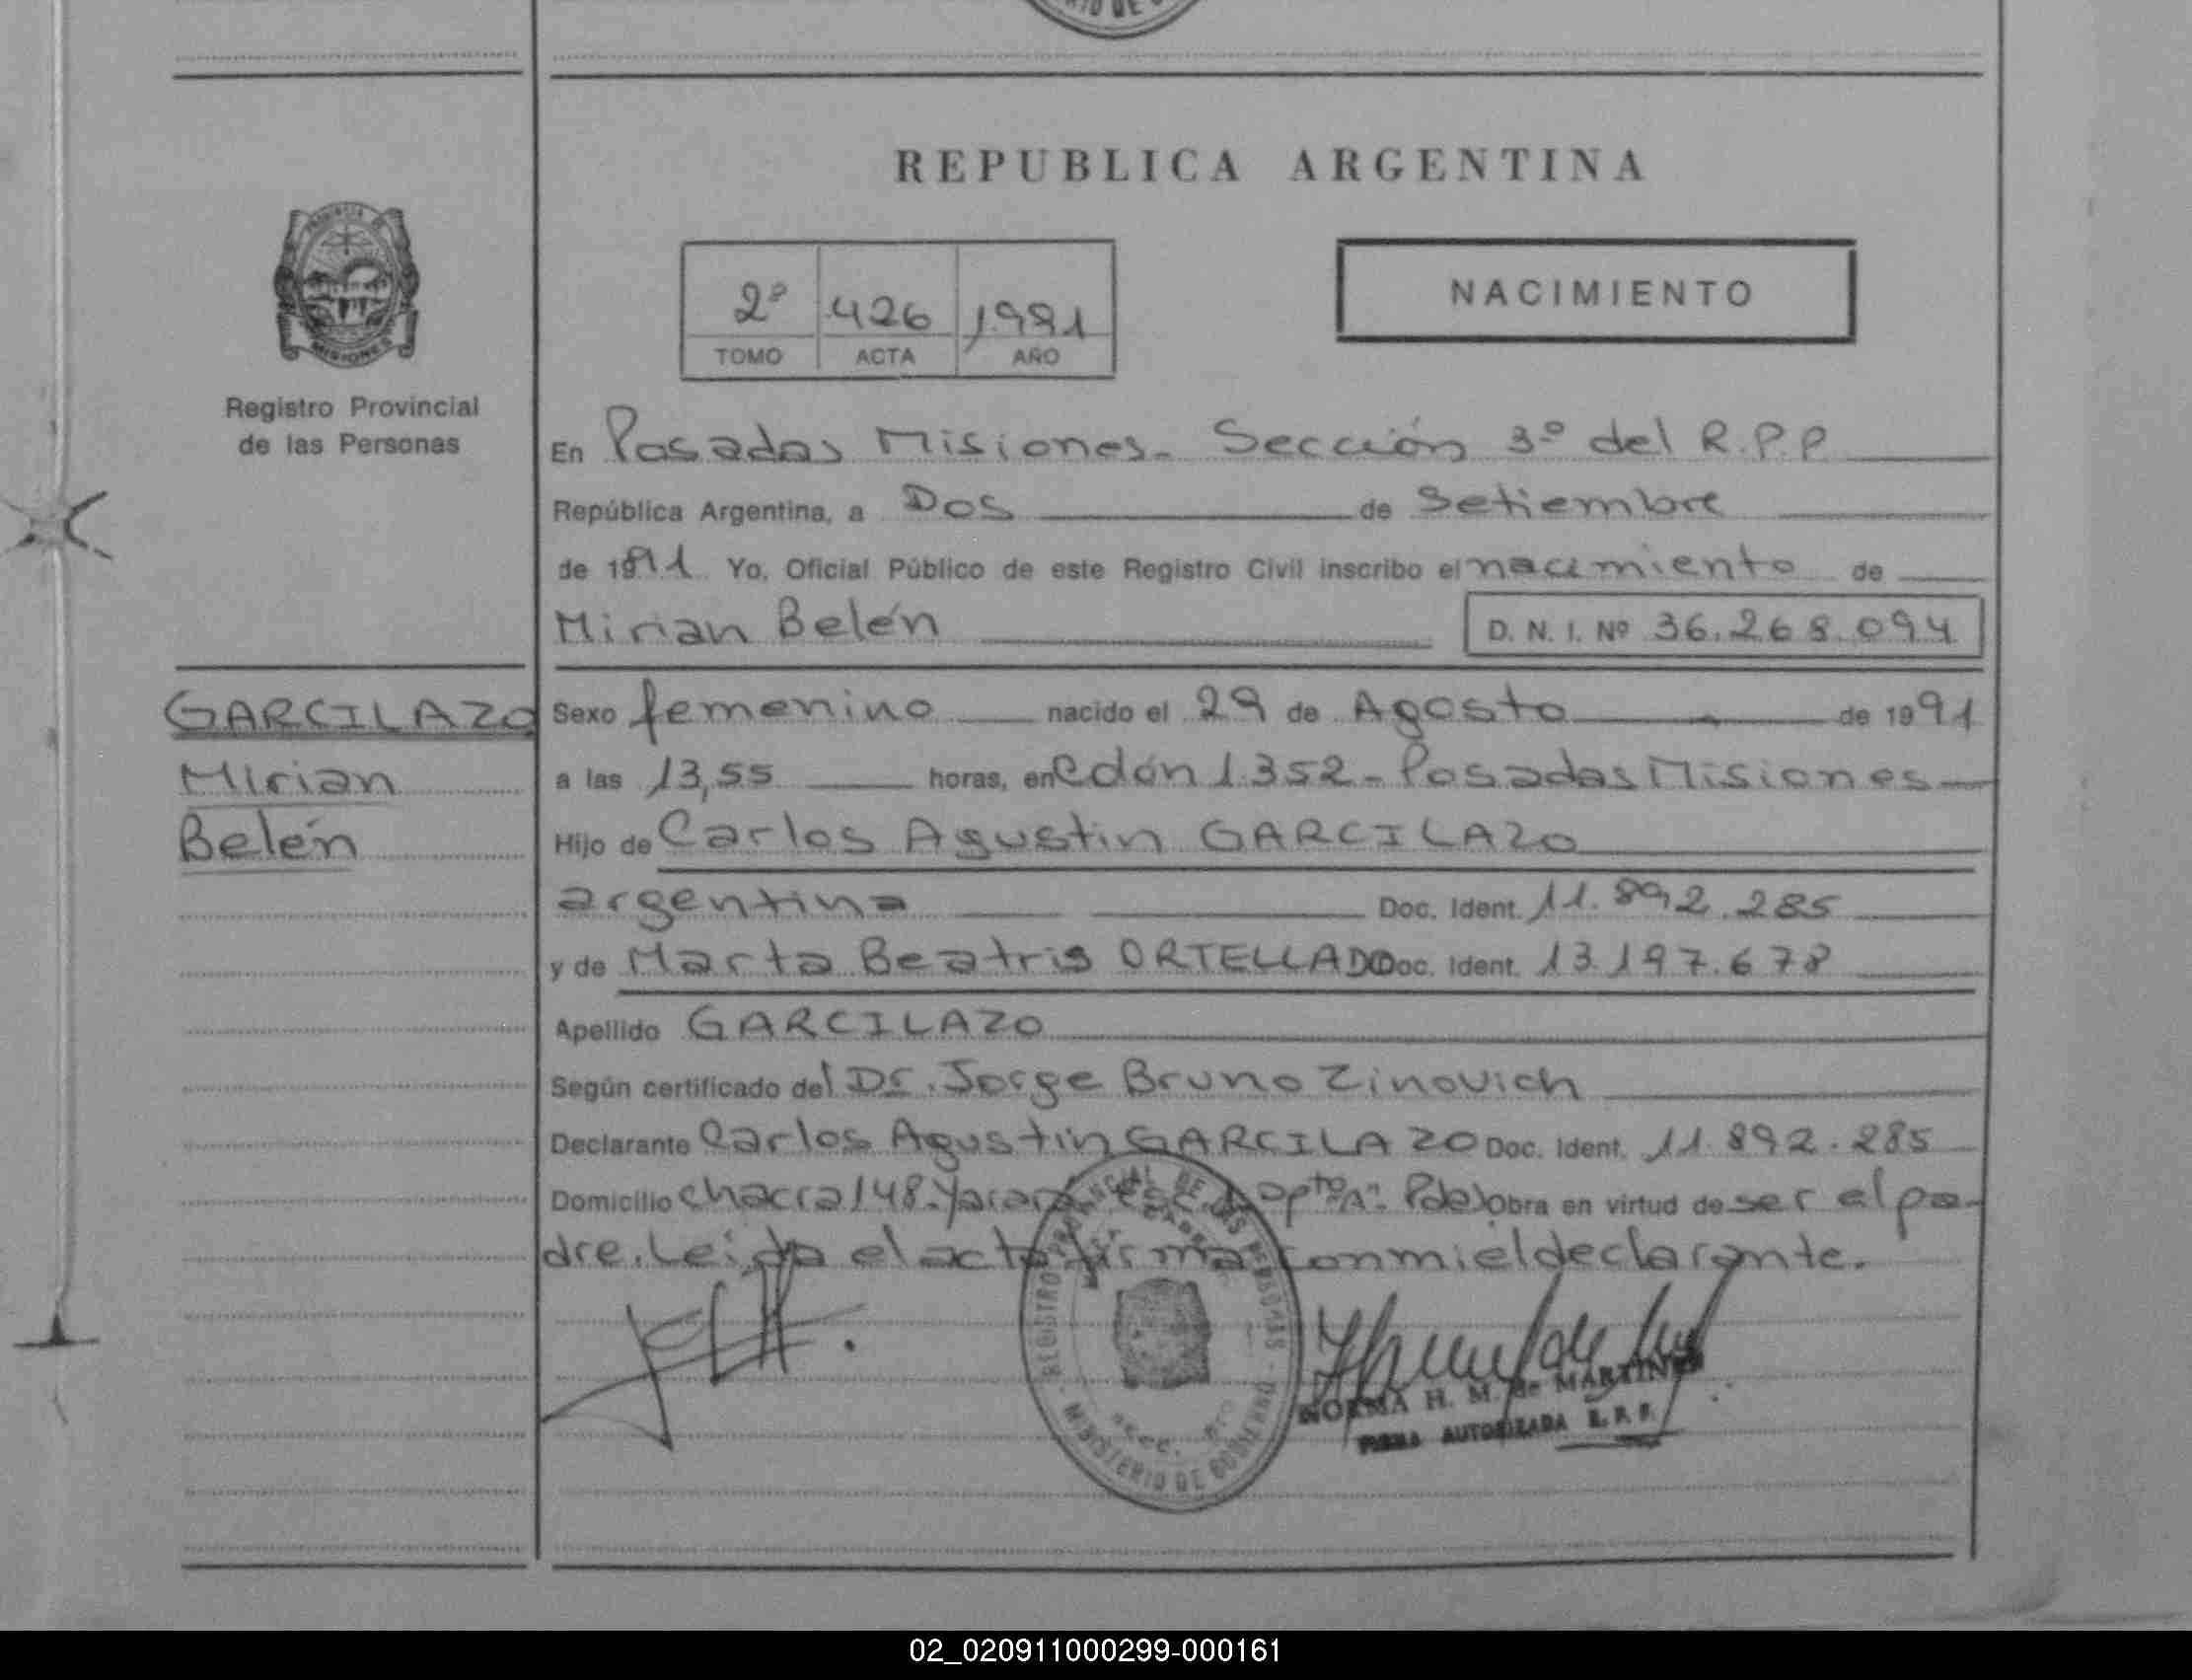 RIO DE
REPUBLICA ARGENTINA
PROVINCIA DE
MISIONES
Registro Provincial
de las Personas
2º 426 1991
TOMO ACTA AÑO
NACIMIENTO
En Posadas Misiones. Sección 3º del R.P.P
República Argentina, a Dos de Setiembre
de 1991 Yo, Oficial Público de este Registro Civil inscribo el nacimiento de
Mirian Belén D. N. I. Nº 36.268.094
GARCILAZO
Mirian
Belén
Sexo femenino nacido el 29 de Agosto de 1991
a las 13,55 horas, en Colón 1.352 - Posadas Misiones
Hijo de Carlos Agustin GARCILAZO
argentina Doc. Ident. 11.892.285
y de Marta Beatris ORTELLADO Doc. Ident. 13.197.678
Apellido GARCILAZO
Según certificado del Dr. Jorge Bruno Zinovich
Declarante Carlos Agustin GARCILAZO Doc. Ident. 11.892.285
Domicilio chacra 148. Yarará esc. Dpto "A". Pdas Obra en virtud de ser el pa-
dre. Leida el acta firma conmi el declarante.
REGISTRO PROVINCIAL DE LAS PERSONAS
MINISTERIO DE GOBIERNO
NORMA H. M. de MARTINEZ
FIRMA AUTORIZADA R. P. P.
02_020911000299-000161